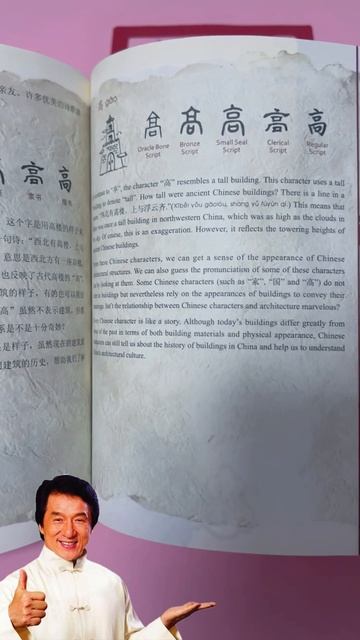 亲友,许多优美的诗歌
高
高
隶书
楷书
这个字是用高楼的样子来
句诗:“西北有高楼,上与
意思是西北方有一座楼,
也反映了古代高楼的“高”。
筑的样子,有的也可以猜出
高”虽然不表示建筑,但
系是不是十分奇妙?
是样子,虽然现在的建筑
建筑的历史,帮助我们了解
高 gāo
Oracle Bone Script
Bronze Script
Small Seal Script
Clerical Script
Regular Script
to “京”, the character “高” resembles a tall building. This character uses a tall
to denote “tall”. How tall were ancient Chinese buildings? There is a line in a
“西北有高楼,上与浮云齐.”(Xīběi yǒu gāolóu, shàng yǔ fúyún qí.) This means that
was once a tall building in northwestern China, which was as high as the clouds in
sky. Of course, this is an exaggeration. However, it reflects the towering heights of
Chinese buildings.
these Chinese characters, we can get a sense of the appearance of Chinese
structures. We can also guess the pronunciation of some of these characters
by looking at them. Some Chinese characters (such as “家”, “国” and “高”) do not
buildings but nevertheless rely on the appearances of buildings to convey their
Isn't the relationship between Chinese characters and architecture marvelous?
Chinese character is like a story. Although today's buildings differ greatly from
of the past in terms of both building materials and physical appearance, Chinese
can still tell us about the history of buildings in China and help us to understand
architectural culture.